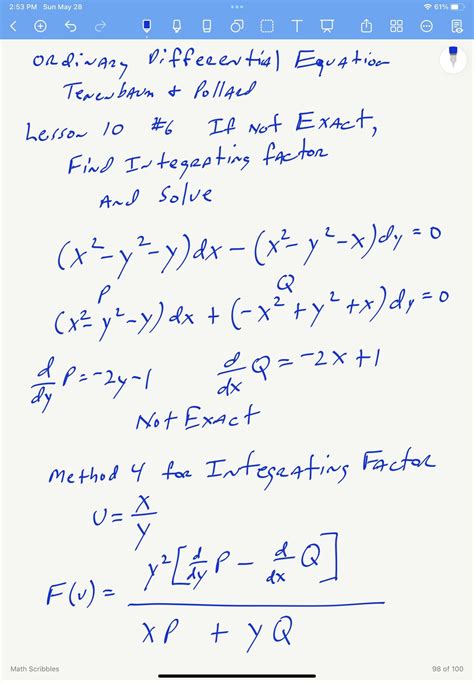 2:53 PM Sun May 28
61%
Ordinary Differential Equation
Tenenbaum & Pollard
Lesson 10 #6 If Not Exact,
Find Integrating factor
And Solve
(x²-y²-y)dx-(x²-y²-x)dy=0
P Q
(x²-y²-y)dx+(-x²+y²+x)dy=0
d/dy P=-2y-1 d/dx Q=-2x+1
Not Exact
Method 4 for Integrating Factor
U=x/y
F(u)= y²[d/dy P - d/dx Q]
xP + yQ
Math Scribbles
98 of 100